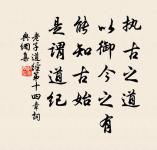 执古之道
以御今之有
能知古始
是谓道纪
老子道经第十四章词
典网集